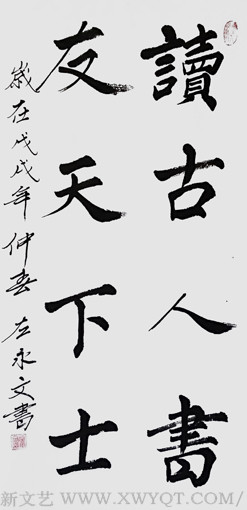 讀古人書
友天下士
歲在戊戌年仲春左永文書
新文艺 WWW.XWYQT.COM/